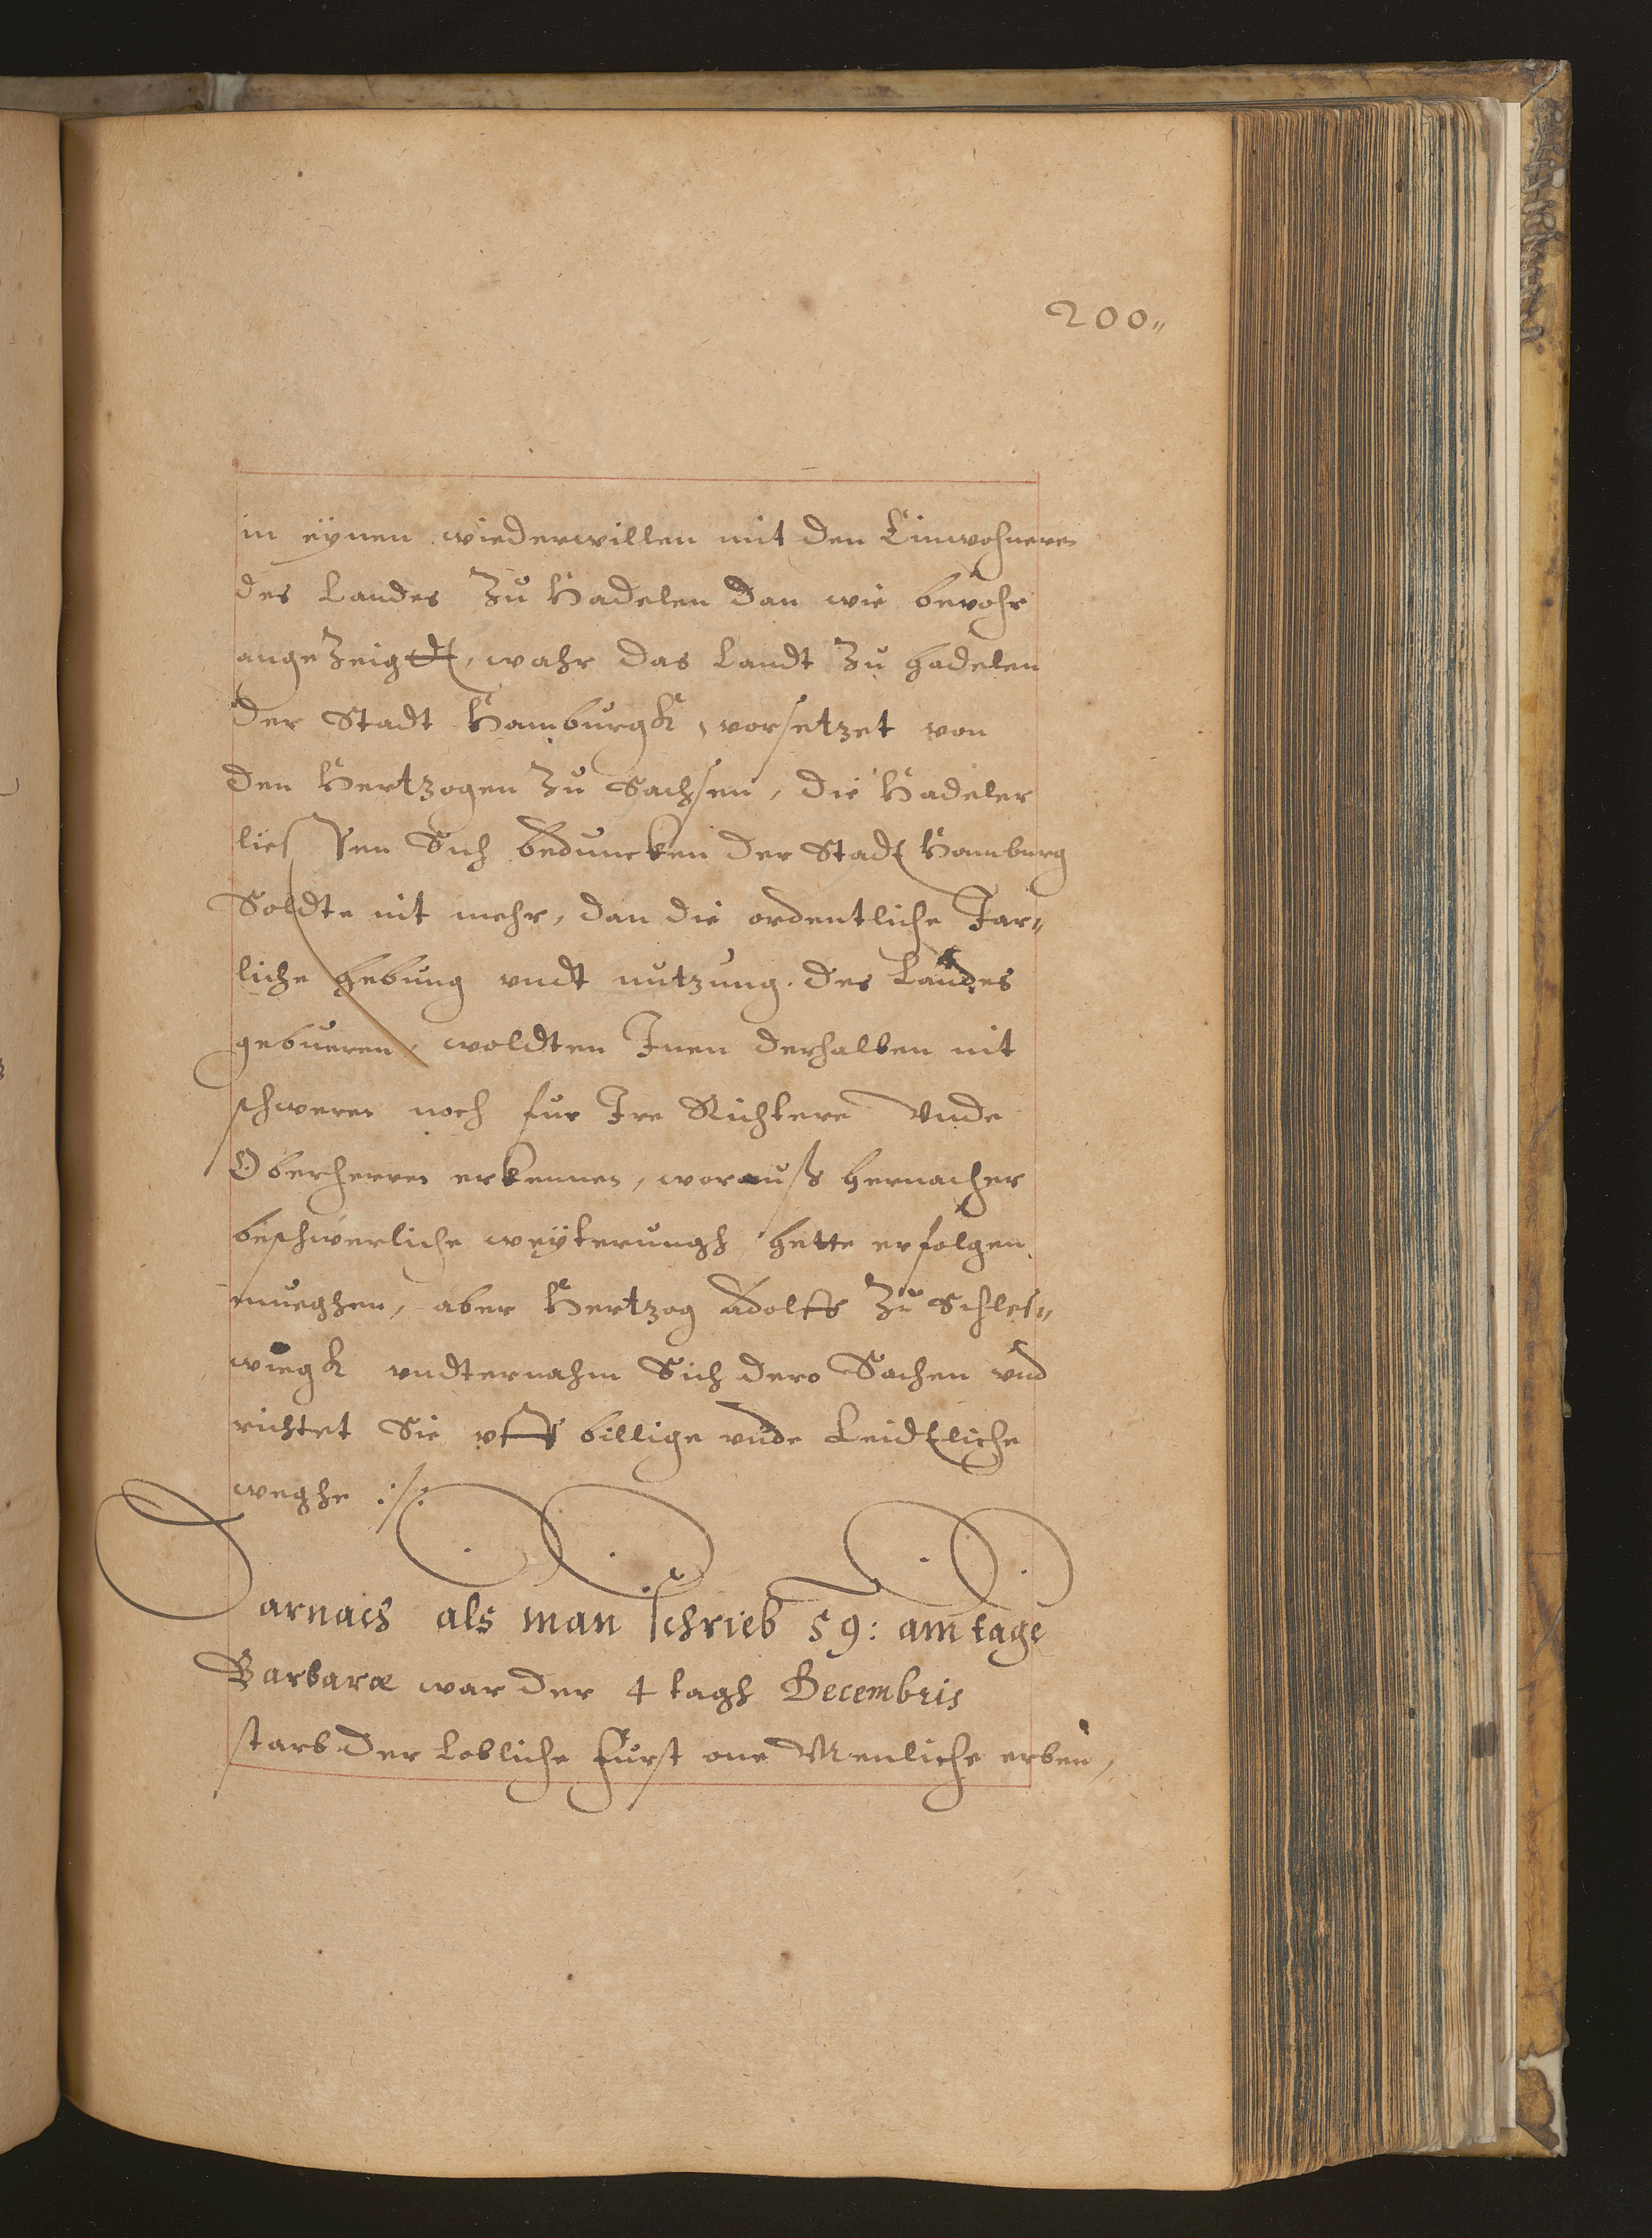 200
in eynen wiederwillen mit den Einwohneren
des Landes Zu Hadelen dan wie bevohr
angeZeigdt, wahr das Landt Zu hadelen
der Stadt Hamburgk, vorsetzet von
den Hertzogen Zu Sachsen, die Hadeler
liessen Sich beduncken der Stadt Hamburg
Soldte nit mehr, dan die ordentliche Jar„
liche hebung undt nutzung des Landes
gebueren, woldten Inen derhalben nit
schweren noch fur Ire Richtere Vnde
Oberherren erkennen, worauß hernacher
beschwerliche weyterungh hette erfolgen
mueghen, aber Hertzog Adolff Zu Schles„
wiegk undternahm Sich dero Sachen und
richtet Sie uff billige unde Leidtliche
weghe
Darnach als man schrieb 59: am tage
Barbaræ war der 4 tagh Decembris
starb der Lobliche Furst one Menliche erben,